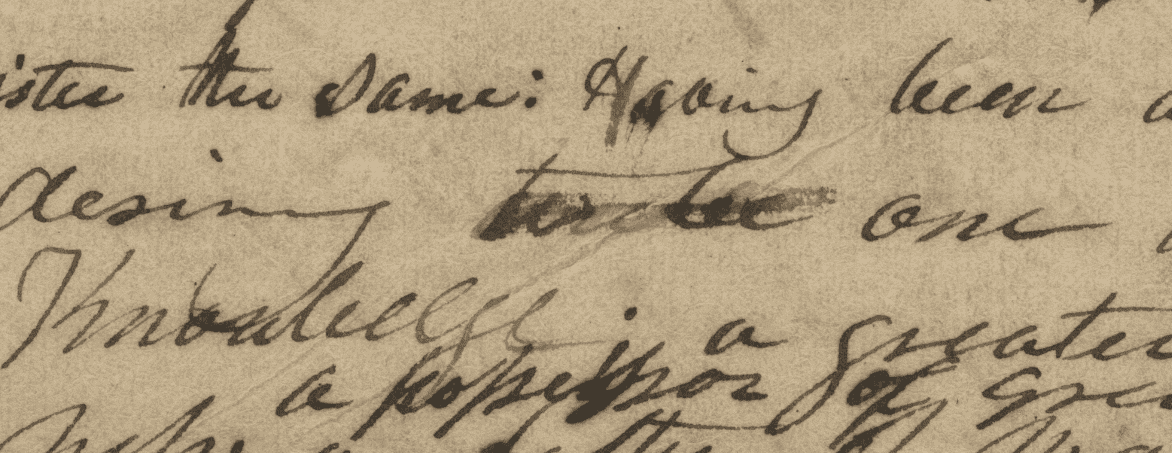 ister the same: Having been
desiring to be one
Knowledge; a greater
a possessor of gre